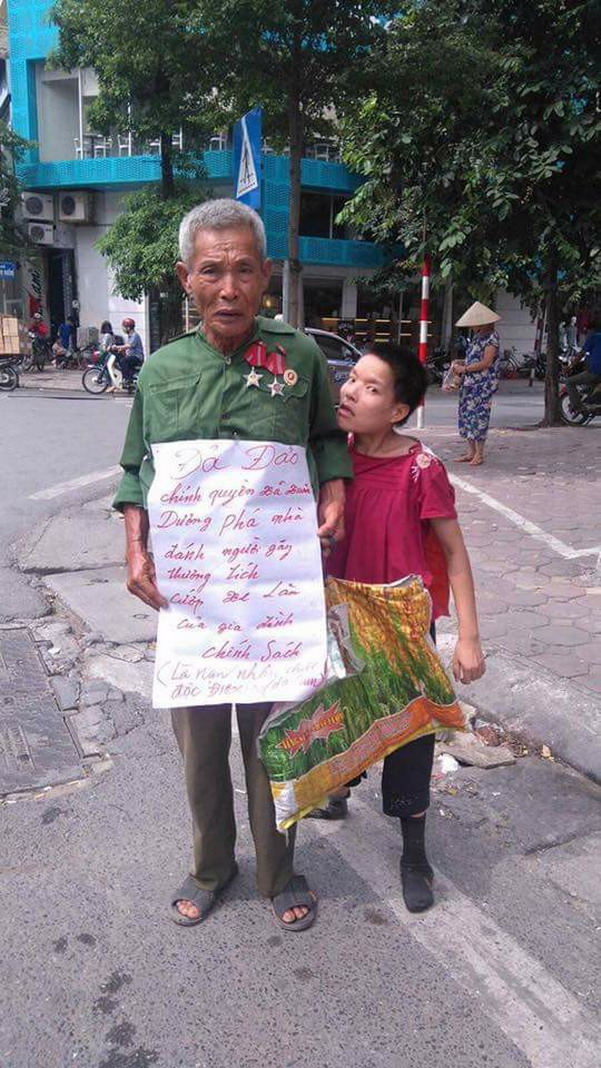 Đả Đảo
chính quyền
Dương phá nhà
đánh người gây
thương tích
cướp Lần
của gia đình
chính Sách
(Là nạn nhân chất
độc